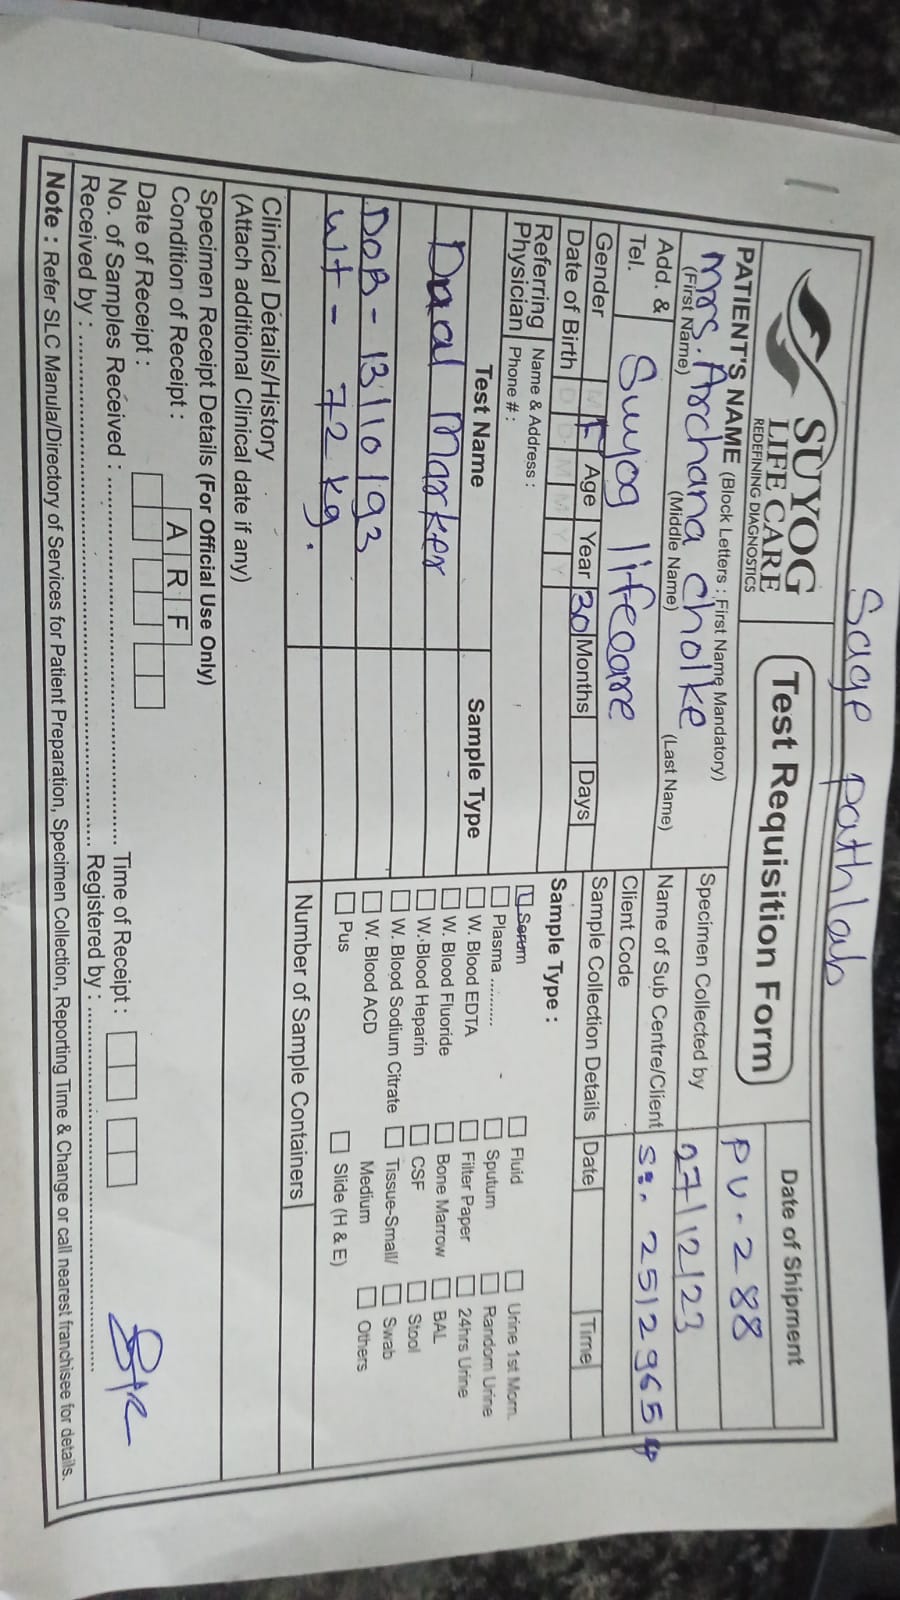 Sage pathlab
SUYOG
LIFE CARE
REDEFINING DIAGNOSTICS
Test Requisition Form
Date of Shipment
PATIENT'S NAME (Block Letters : First Name Mandatory)
Mrs. Archana cholke
(First Name) (Middle Name) (Last Name)
Specimen Collected by PU-288
27/12/23
Add. & Tel. Suyog lifecare
Name of Sub Centre/Client
Client Code
25129654
Gender M F Age Year 30 Months Days
Sample Collection Details Date Time
Date of Birth D D M M Y Y
Referring Physician Name & Address :
Phone # :
Sample Type :
Serum Fluid Urine 1st Morn.
Plasma .......... Sputum Random Urine
W. Blood EDTA Filter Paper 24hrs Urine
W. Blood Fluoride Bone Marrow BAL
W. Blood Heparin CSF Stool
W. Blood Sodium Citrate Tissue-Small/ Medium Swab
W. Blood ACD Others
Pus Slide (H & E)
Test Name Sample Type
Dual Marker
DOB - 13/10/93
wt - 72 kg.
Number of Sample Containers
Clinical Details/History
(Attach additional Clinical date if any)
Specimen Receipt Details (For Official Use Only)
Condition of Receipt : A R F
Date of Receipt : Time of Receipt :
No. of Samples Received : ..........
Received by : .......... Registered by : ..........
Note : Refer SLC Manula/Directory of Services for Patient Preparation, Specimen Collection, Reporting Time & Change or call nearest franchisee for details.